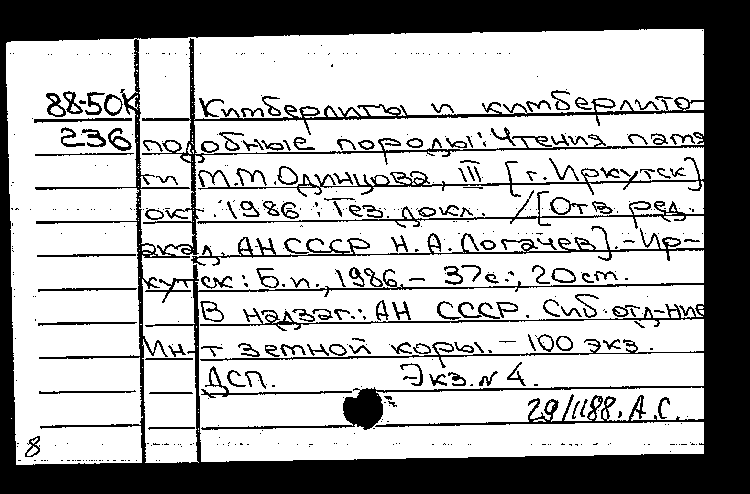 88-50К Кимберлиты и кимберлито-
236 подобные породы: Чтения памя
ти М.М.Одинцова, III [г. Иркутск]
окт. 1986 : Тез. докл. / [Отв. ред.
акад. АН СССР Н.А.Логачев]. - Ир-
кутск: Б.и., 1986. - 37с.; 20 cm.
В надзаг.: АН СССР. Сиб. отд-ние
Ин-т земной коры. - 100 экз.
ДСП. Экз. N 4.
29/1188. А.С.
8